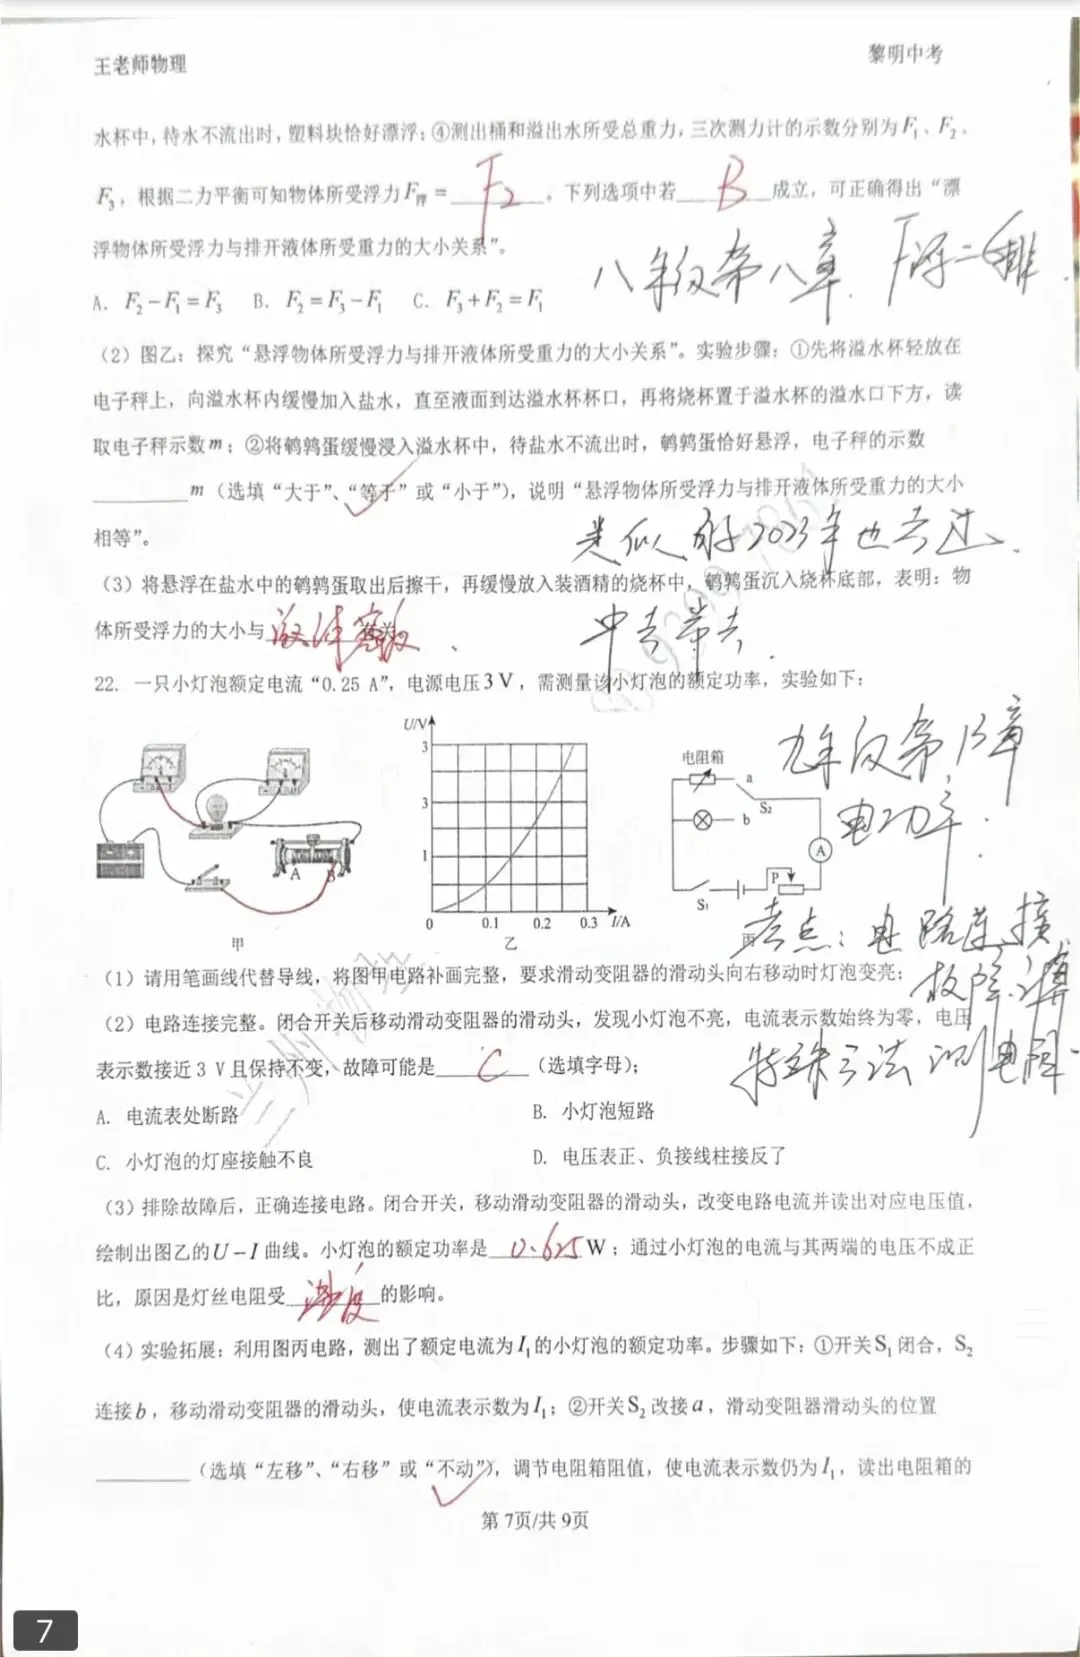 王老师物理
黎明中考
水杯中，待水不流出时，塑料块恰好漂浮；④测出桶和溢出水所受总重力，三次测力计的示数分别为F₁、F₂、
F₃，根据二力平衡可知物体所受浮力F浮 = F₂ 。下列选项中若 B 成立，可正确得出“漂
浮物体所受浮力与排开液体所受重力的大小关系”。
八年级第八章. F浮=G排
A. F₂－F₁＝F₃ B. F₂＝F₃－F₁ C. F₃＋F₂＝F₁
（2）图乙：探究“悬浮物体所受浮力与排开液体所受重力的大小关系”。实验步骤：①先将溢水杯轻放在
电子秤上，向溢水杯内缓慢加入盐水，直至液面到达溢水杯杯口，再将烧杯置于溢水杯的溢水口下方，读
取电子秤示数m；②将鹌鹑蛋缓慢浸入溢水杯中，待盐水不流出时，鹌鹑蛋恰好悬浮，电子秤的示数
________m（选填“大于”、“等于”或“小于”），说明“悬浮物体所受浮力与排开液体所受重力的大小
相等”。
类似 2023年也考过.
（3）将悬浮在盐水中的鹌鹑蛋取出后擦干，再缓慢放入装酒精的烧杯中，鹌鹑蛋沉入烧杯底部，表明：物
体所受浮力的大小与 液体密度 有关
中考常考.
22. 一只小灯泡额定电流“0.25 A”，电源电压3 V，需测量该小灯泡的额定功率，实验如下：
九年级第15章
电功率.
A B
甲
U/V
3
3
1
0 0.1 0.2 0.3 I/A
乙
电阻箱
a
S₂
b
A
P
S₁
丙
考点：电路连接
（1）请用笔画线代替导线，将图甲电路补画完整，要求滑动变阻器的滑动头向右移动时灯泡变亮；
故障.计算
（2）电路连接完整。闭合开关后移动滑动变阻器的滑动头，发现小灯泡不亮，电流表示数始终为零，电压
表示数接近 3 V且保持不变，故障可能是 C （选填字母）；
特殊方法测电阻
A. 电流表处断路
B. 小灯泡短路
C. 小灯泡的灯座接触不良
D. 电压表正、负接线柱接反了
（3）排除故障后，正确连接电路。闭合开关，移动滑动变阻器的滑动头，改变电路电流并读出对应电压值，
绘制出图乙的U－I曲线。小灯泡的额定功率是 0.625 W；通过小灯泡的电流与其两端的电压不成正
比，原因是灯丝电阻受 温度 的影响。
（4）实验拓展：利用图丙电路，测出了额定电流为I₁的小灯泡的额定功率。步骤如下：①开关S₁闭合，S₂
连接b，移动滑动变阻器的滑动头，使电流表示数为I₁；②开关S₂改接a，滑动变阻器滑动头的位置
________（选填“左移”、“右移”或“不动”），调节电阻箱阻值，使电流表示数仍为I₁，读出电阻箱的
第 7页/共 9页
7